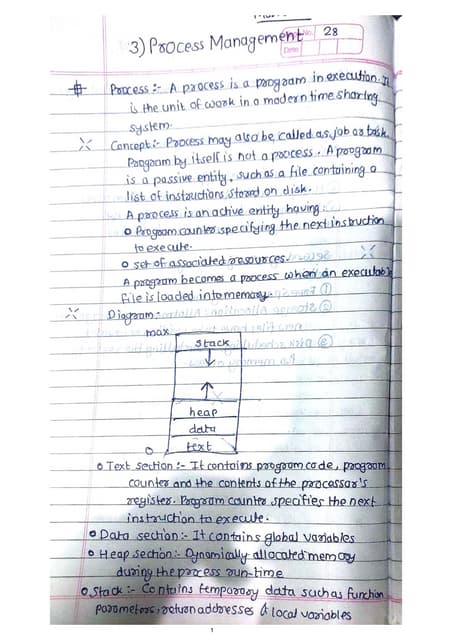 No. 28
Date
3) Process Management
Process :- A process is a program in execution. It
is the unit of work in a modern time sharing
system.
Concept :- Process may also be called as job or task.
Program by itself is not a process. A program
is a passive entity, such as a file containing a
list of instructions stored on disk.
A process is an active entity having :
o Program counter specifying the next instruction
to execute.
o set of associated resources.
A program becomes a process when an executable
file is loaded into memory.
Diagram :-
max
stack
heap
data
text
0
o Text section :- It contains program code, program
counter and the contents of the processor's
register. Program counter specifies the next
instruction to execute.
o Data section :- It contains global variables
o Heap section :- Dynamically allocated memory
during the process run-time
o Stack :- Contains temporary data such as function
parameters, return addresses & local variables
1